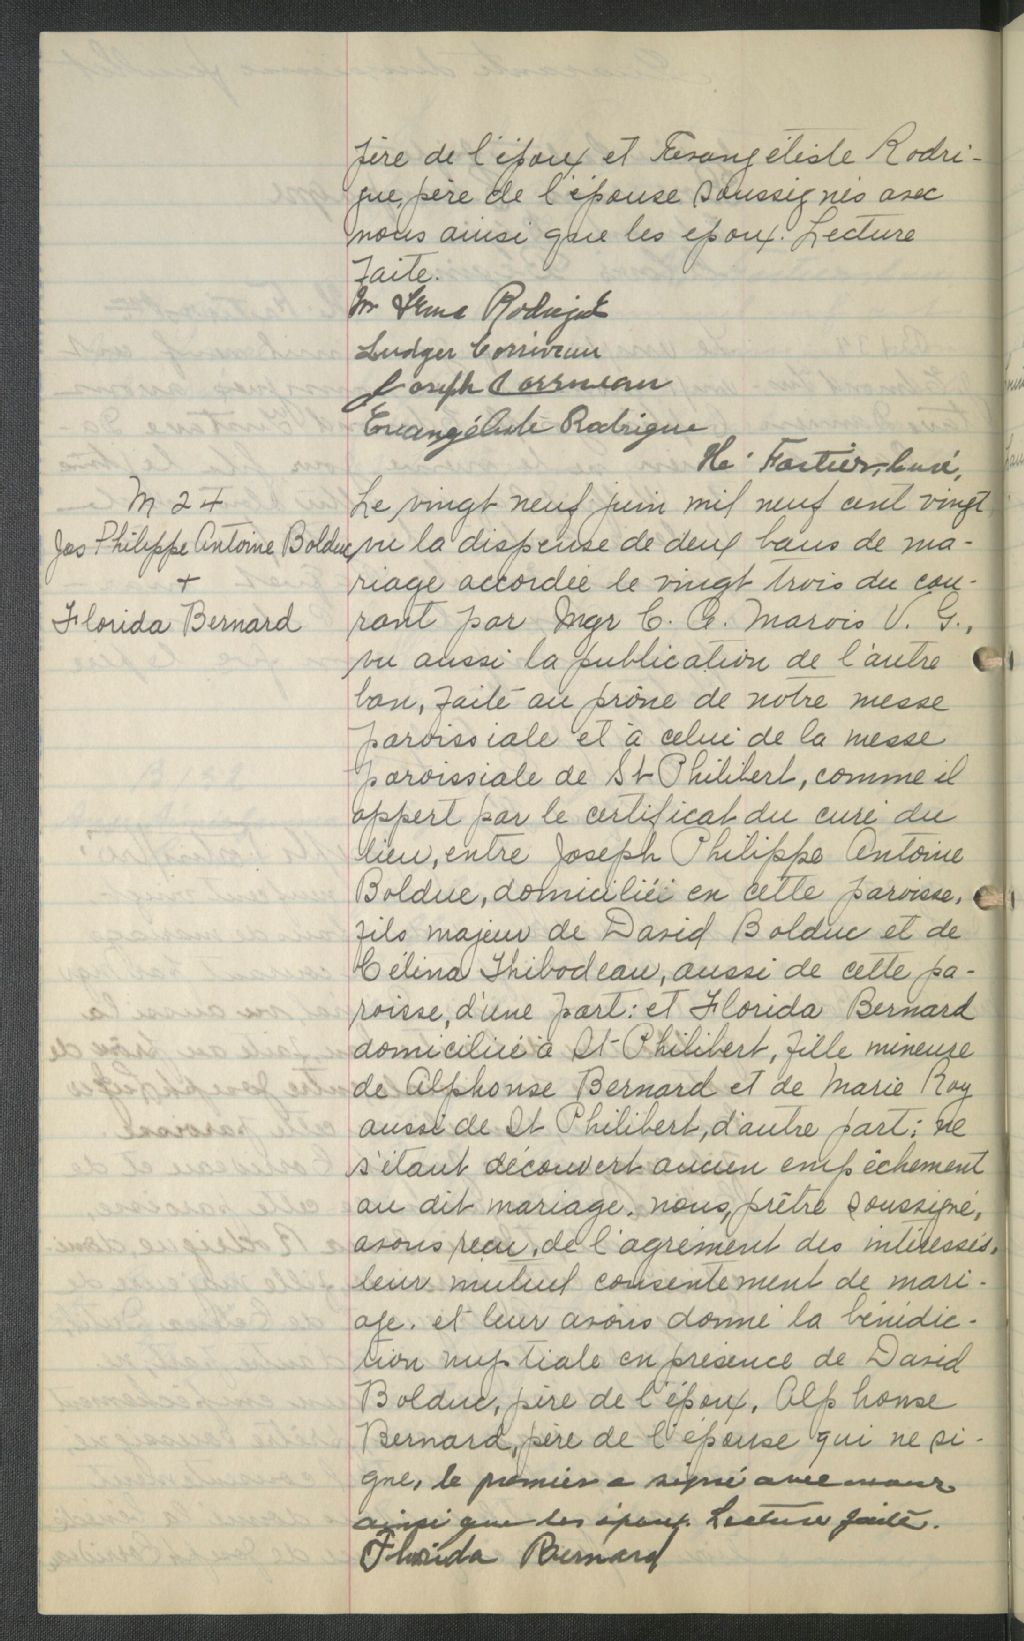 père de l'époux et Evangéliste Rodri-
gue, père de l'épouse soussignés avec
nous ainsi que les epoux. Lecture
faite.
Ludger Corriveau
Joseph Corriveau
Evangéliste Rodrigue
Fortier, Curé,
M 24
Jos Philippe Antoine Bolduc
+
Florida Bernard
Le vingt neuf juin mil neuf cent vingt
vu la dispense de deux bans de ma-
riage accordée le vingt trois du cou-
rant par Mgr C. A. Marois V. G.,
vu aussi la publication de l'autre
ban, faite au prône de notre messe
paroissiale et à celui de la messe
paroissiale de St Philibert, comme il
appert par le certificat du curé du
lieu, entre Joseph Philippe Antoine
Bolduc, domicilié en cette paroisse,
fils majeur de David Bolduc et de
Célina Thibodeau, aussi de cette pa-
roisse, d'une part: et Florida Bernard
domiciliée à St Philibert, fille mineure
de Alphonse Bernard et de Marie Roy
aussi de St Philibert, d'autre part; ne
s'étant découvert aucun empêchement
au dit mariage, nous, prêtre soussigné,
avons reçu, de l'agrément des intéressés,
leur mutuel consentement de mari-
age. et leur avons donné la bénédic-
tion nuptiale en présence de David
Bolduc, père de l'époux, Alphonse
Bernard, père de l'épouse qui ne si-
gne, le premier a signé avec nous
ainsi que les époux. Lecture faite.
Florida Bernard